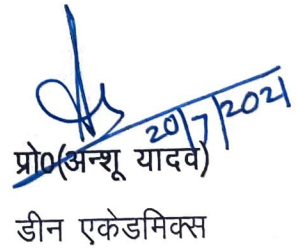 20/7/2021
प्रो0(अन्शू यादव)
डीन एकेडमिक्स